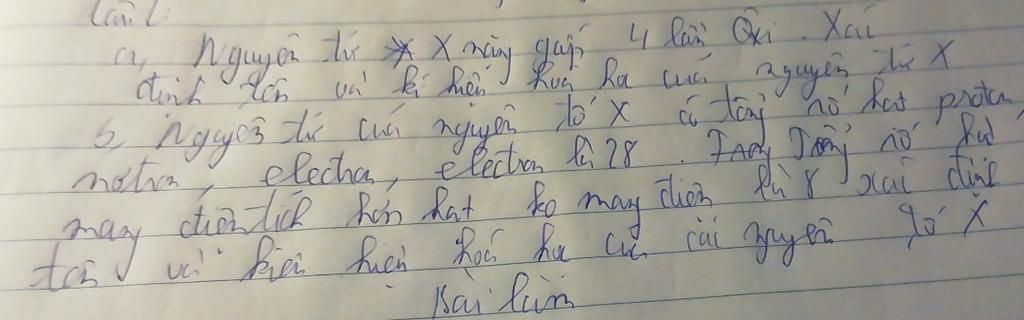 Câu 1:
a, Nguyên tử X nặng gấp 4 lần Oxi. Xác
định tên và kí hiệu hoá học của nguyên tử X
b, Nguyên tử của nguyên tố X có tổng số hạt proton,
nơtron, electron, electron là 28. Trong tổng số hạt
mang điện tích hơn hạt ko mang điện là 8 xác định
tên và kiến hiệu hoá học của các nguyên tố X
Bài làm